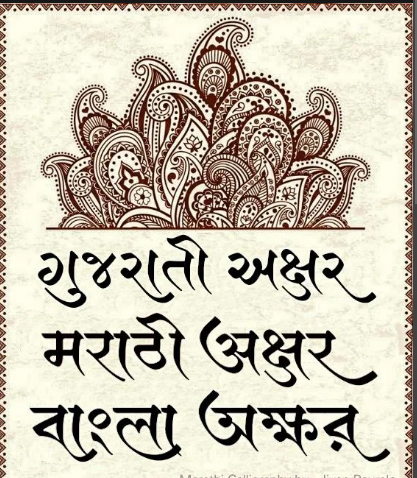 ગુજરાતી અક્ષર
मराठी अक्षर
বাংলা অক্ষর
Marathi Calligraphy by